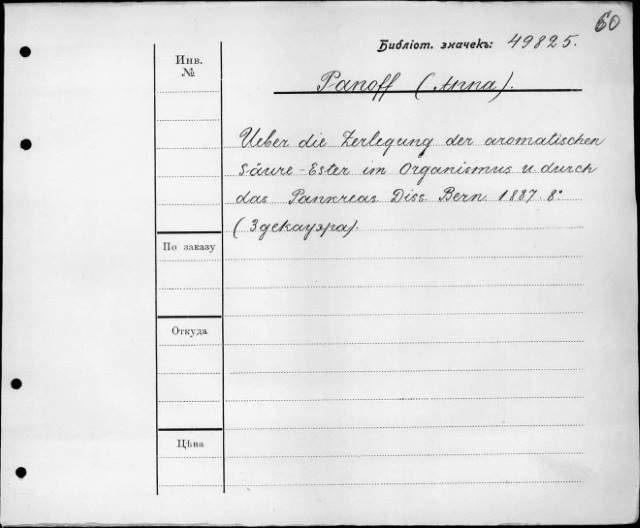 60
Библіот. значекъ: 49825.
Инв.
№
Panoff (Anna).
Ueber die Zerlegung der aromatischen
Säure-Ester im Organismus u. durch
das Pankreas Diss. Bern. 1887. 8°
(Здекауэра).
По заказу
Откуда
Цѣна